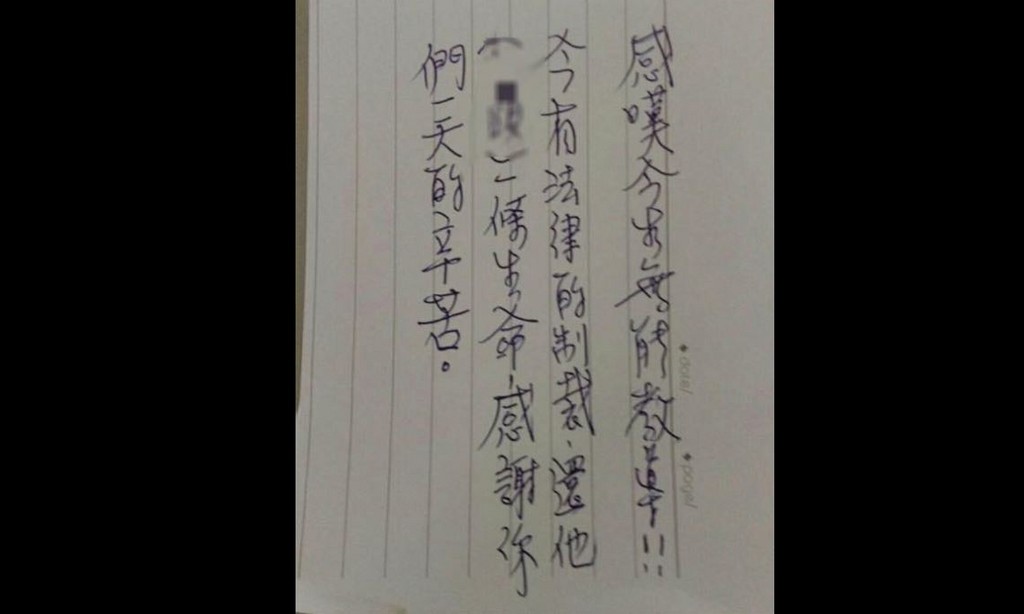 感嘆今生無能教導!!
今有法律的制裁.還他
( )一條生命.感謝你
們一天的辛苦。
date/
page/